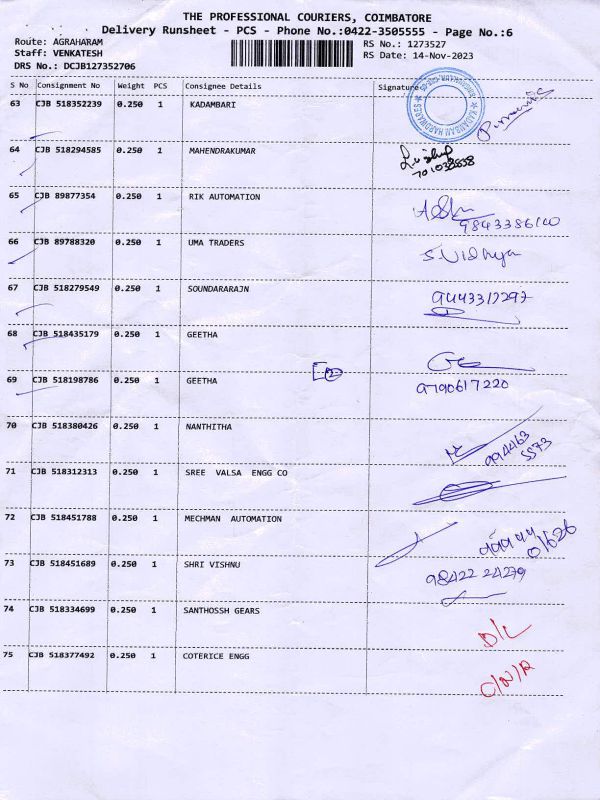 THE PROFESSIONAL COURIERS, COIMBATORE
Delivery Runsheet - PCS - Phone No.:0422-3505555 - Page No.:6
Route: AGRAHARAM
Staff: VENKATESH
DRS No.: DCJB127352706
RS No.: 1273527
RS Date: 14-Nov-2023
S No Consignment No Weight PCS Consignee Details Signature
63 CJB 518352239 0.250 1 KADAMBARI
KADAMBAM HARDWARES
64 CJB 518294585 0.250 1 MAHENDRAKUMAR
65 CJB 89877354 0.250 1 RIK AUTOMATION
66 CJB 89788320 0.250 1 UMA TRADERS S Vidhya
67 CJB 518279549 0.250 1 SOUNDARARAJN 9443317297
68 CJB 518435179 0.250 1 GEETHA
69 CJB 518198786 0.250 1 GEETHA 2 9790617220
70 CJB 518380426 0.250 1 NANTHITHA 994463
5573
71 CJB 518312313 0.250 1 SREE VALSA ENGG CO
72 CJB 518451788 0.250 1 MECHMAN AUTOMATION
73 CJB 518451689 0.250 1 SHRI VISHNU 98422 24279
74 CJB 518334699 0.250 1 SANTHOSSH GEARS D/L
75 CJB 518377492 0.250 1 COTERICE ENGG C/N/R